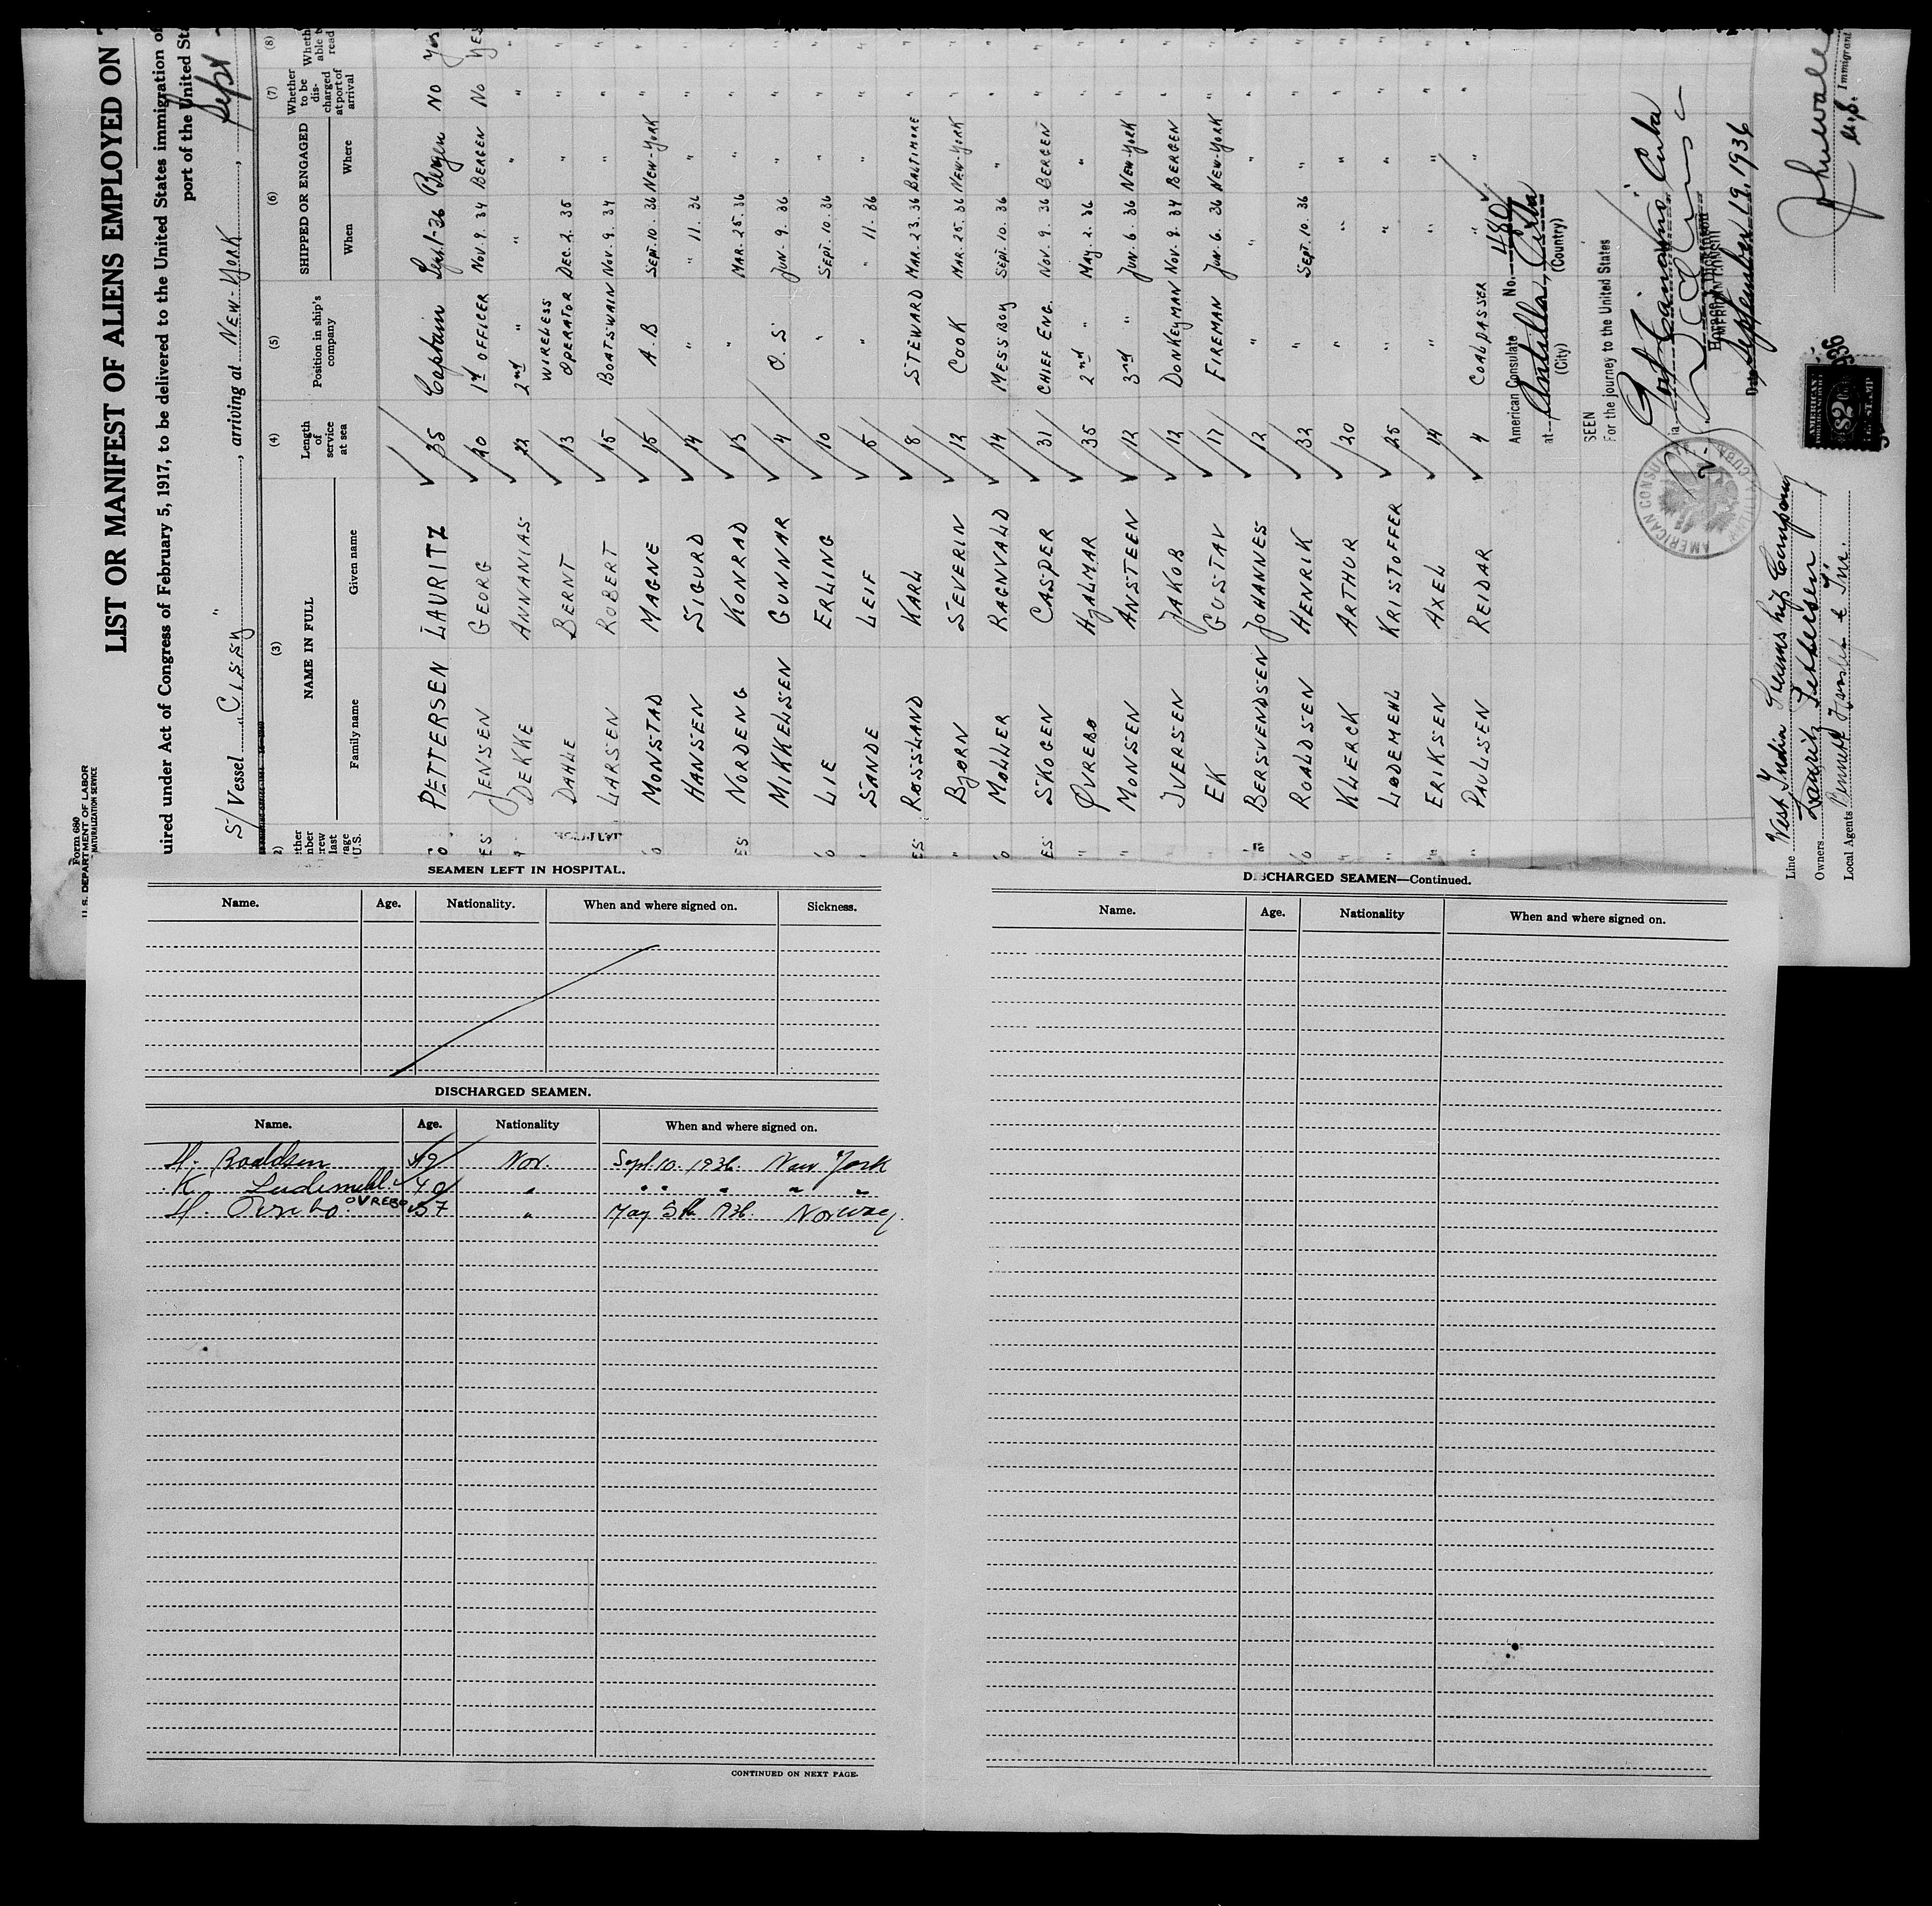 Form 680
U. S. DEPARTMENT OF LABOR
NATURALIZATION SERVICE
LIST OR MANIFEST OF ALIENS EMPLOYED ON
uired under Act of Congress of February 5, 1917, to be delivered to the United States immigration of
port of the United Sta
S/ Vessel "CISSY", arriving at NEW-YORK, Sept
(3) (4) (5) (6) (7) (8)
NAME IN FULL Length of service at sea Position in ship's company SHIPPED OR ENGAGED Whether to be discharged at port of arrival Wheth able t read
Family name Given name When Where
PETTERSEN LAURITZ 35 Captain Bergen No yes
ES JENSEN GEORG 20 1st OFFICER Nov. 9. 34 BERGEN No YES
" DEKKE ANNANIAS 22 2nd " " " " "
DAHLE BERNT 13 WIRELESS OPERATOR DEC. 2. 35 " " "
LARSEN ROBERT 15 BOATSWAIN Nov. 9. 34 " " "
MONSTAD MAGNE 15 A. B SEPT. 10. 36 NEW-YORK " "
HANSEN SIGURD 14 " " 11. 36 " " "
ES NORDENG KONRAD 13 " MAR. 25. 36 " " "
MIKKELSEN GUNNAR 4 O. S JUN. 9. 36 " " "
LIE ERLING 10 " SEPT. 10. 36 " " "
SANDE LEIF 5 " " 11. 36 " " "
ES ROSSLAND KARL 8 STEWARD MAR. 23. 36 BALTIMORE " "
" BJORN SEVERIN 12 COOK MAR. 25. 36 NEW-YORK " "
MOLLER RAGNVALD 14 MESSBOY SEPT. 10. 36 " " "
ES SKOGEN CASPER 31 CHIEF ENG. Nov. 9. 36 BERGEN " "
" ØVREBO HJALMAR 35 2nd " MAY. 2. 36 " " "
" MONSEN ANSTEEN 12 3rd " JUN. 6. 36 NEW-YORK " "
" IVERSEN JAKOB 12 DONKEYMAN Nov. 9. 34 BERGEN " "
" EK GUSTAV 17 FIREMAN JUN. 6. 36 NEW-YORK " "
BERSVENDSEN JOHANNES 12 " " " " "
ROALDSEN HENRIK 32 " SEPT. 10. 36 " " "
" KLERCK ARTHUR 20 " " " " "
" LODEMEHL KRISTOFFER 25 " " " " "
" ERIKSEN AXEL 14 " " " " "
" PAULSEN REIDAR 4 COALPASSER " " " "
American Consulate No. 480
at Antilla, Cuba
(City) (Country)
SEEN
For the journey to the United States
AMERICAN CONSUL
Date September 19, 1936
AMERICAN CONSUL
CUBA
AMERICAN
$2
FEE STAMP
Line West India Steamship Company
Owners Lauritz Pettersen
Local Agents Inc.
Immigrant
SEAMEN LEFT IN HOSPITAL.
Name. Age. Nationality. When and where signed on. Sickness.
DISCHARGED SEAMEN.
Name. Age. Nationality When and where signed on.
H. Roaldsen 49 Nor. Sept. 10. 1936. New York
K. Lodemehl 40 " " " " " "
H. Ovrebo OVREBO 57 " May 5th 1936. Norway.
CONTINUED ON NEXT PAGE.
DISCHARGED SEAMEN—Continued.
Name. Age. Nationality When and where signed on.